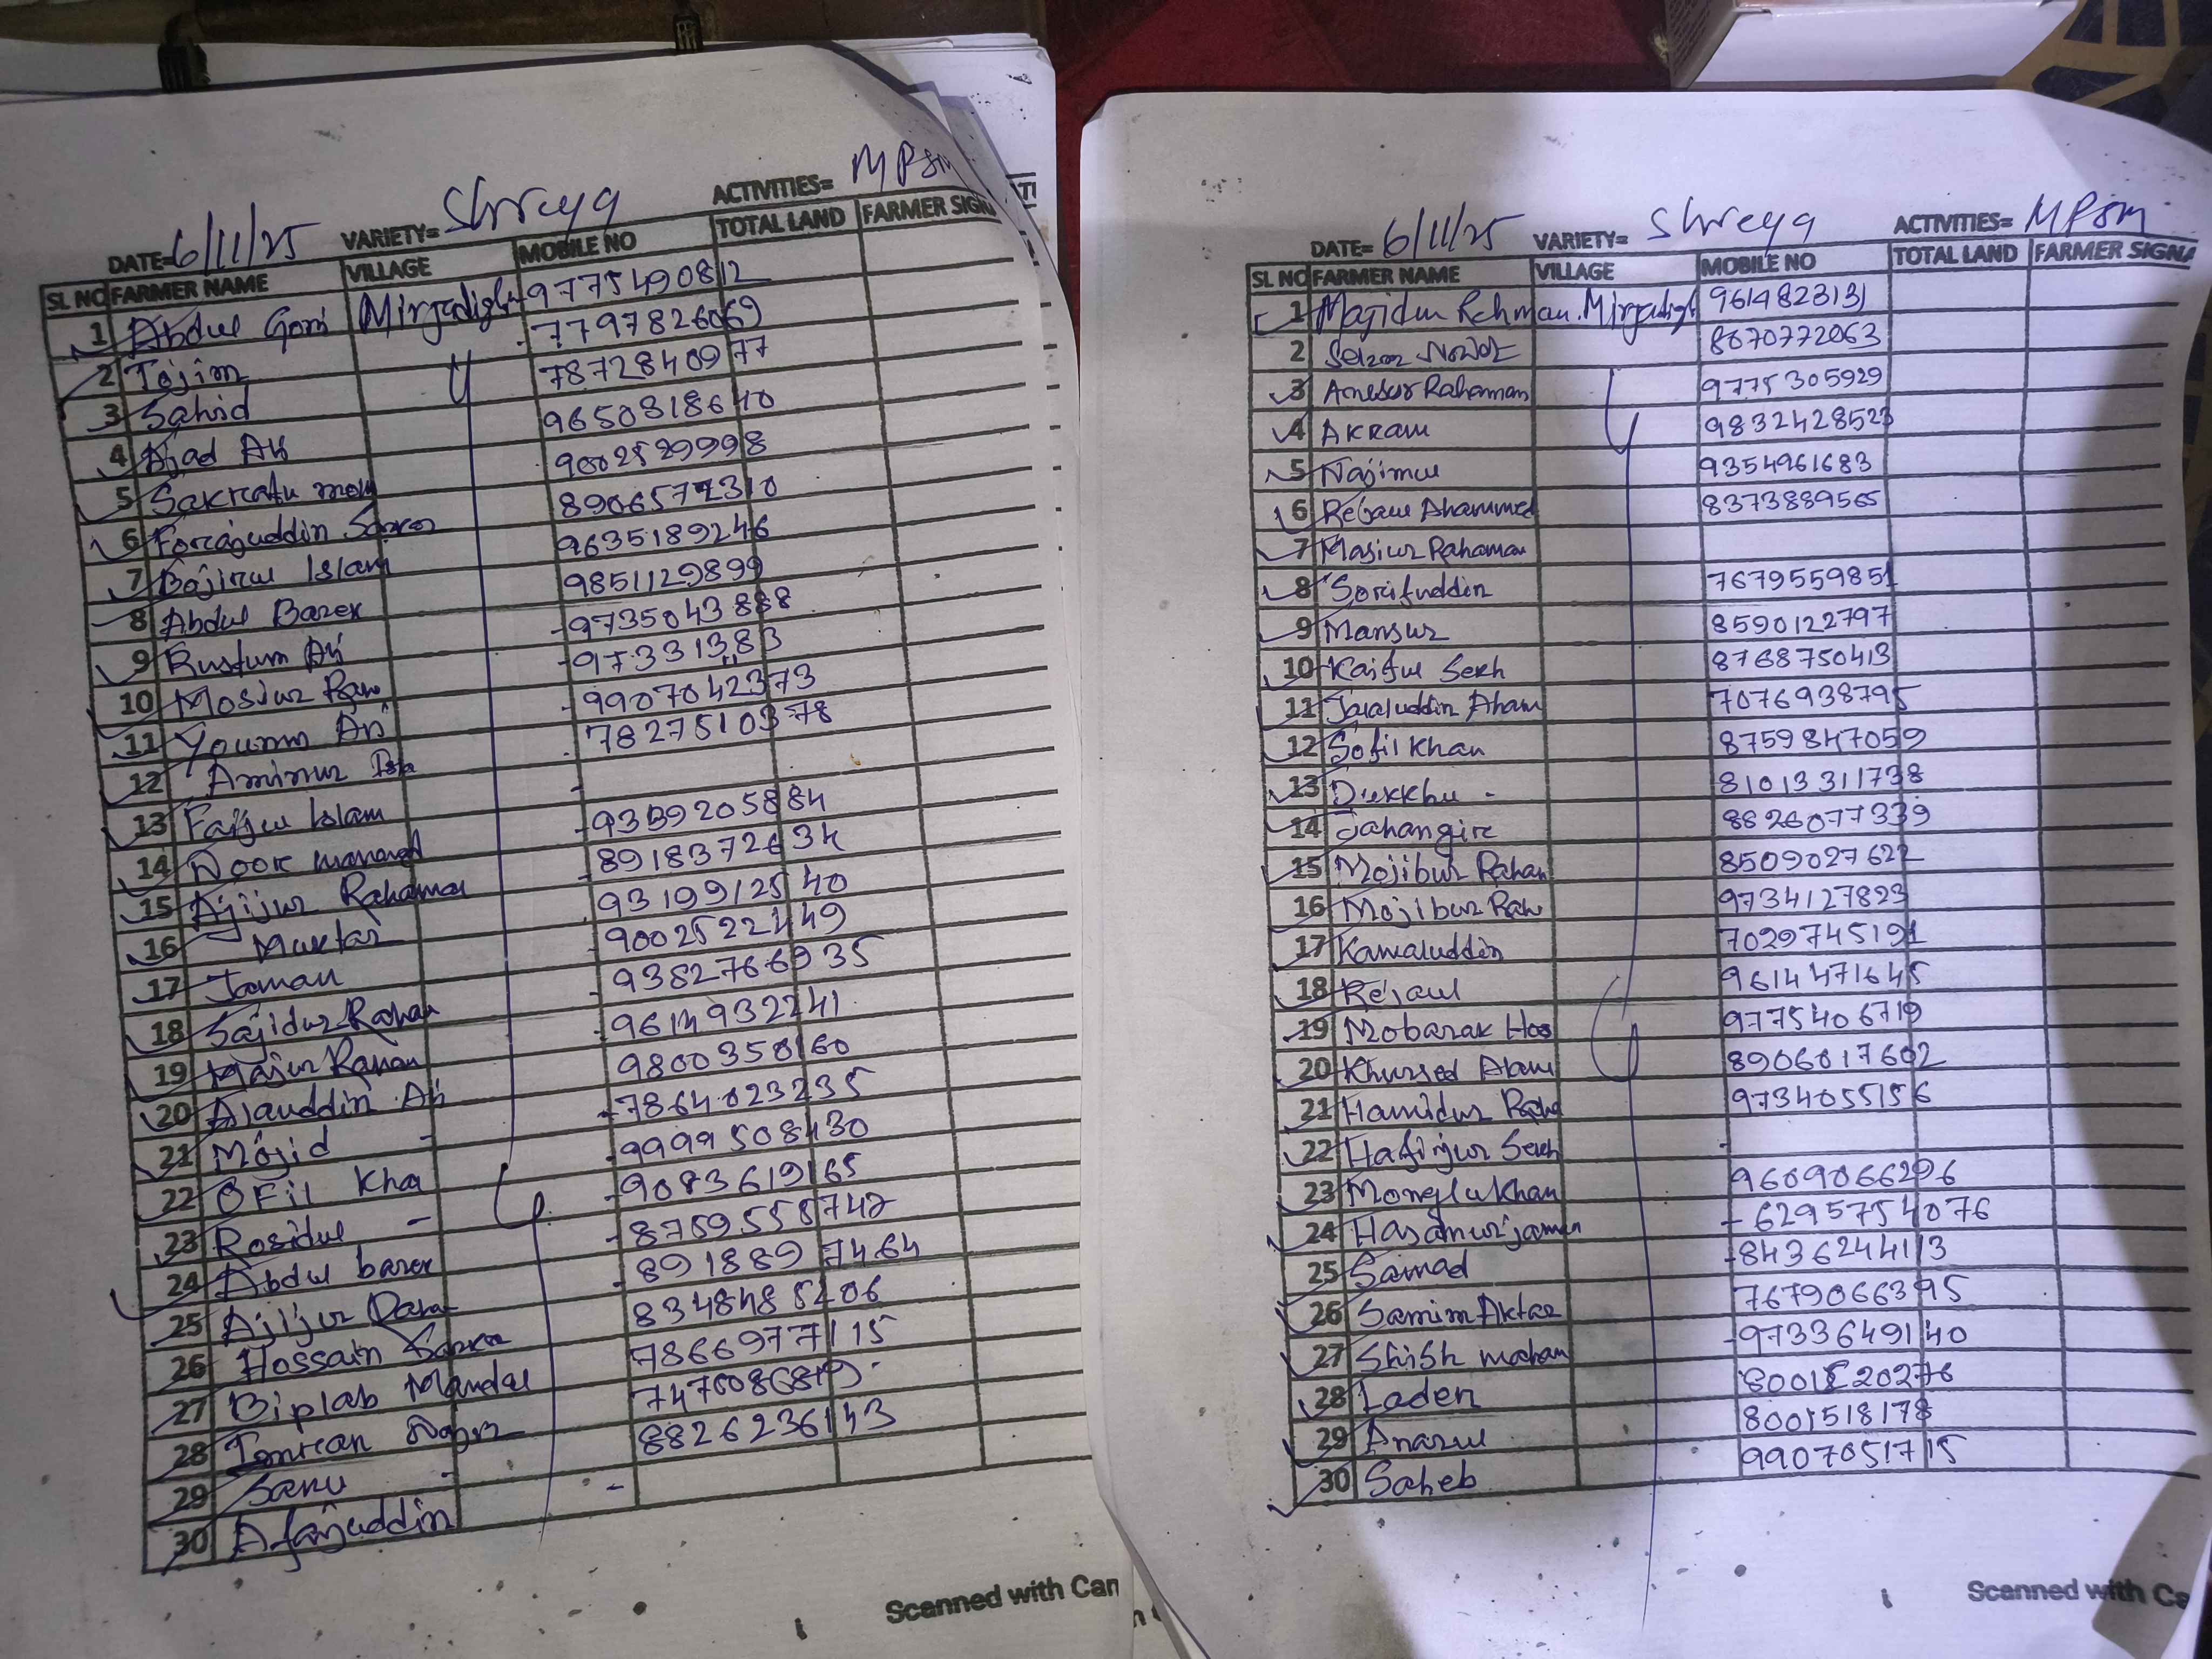 DATE= 6/11/25 VARIETY= Shreya ACTIVITIES= MPSM
SL NO FARMER NAME VILLAGE MOBILE NO TOTAL LAND FARMER SIGN
1 Abdul Goni Mirjadighi 9775490812
2 Tojim 7797826069
3 Sahid 7872840977
4 Ajad Ali 9650818640
5 Sakreatu 9002529998
6 Forcajuddin Sarkar 8906577310
7 Bojirul Islam 9635189246
8 Abdul Barek 9851129899
9 Rustum Ali 9735043888
10 Mosiur Rah 97331383
11 Younus Ali 9907042373
12 Aminur Isla 7827510378
13 Faijul Islam -
14 Noor 9339205884
15 Ajijur Rahaman 8918372634
16 Muktar 9319912540
17 Jaman 9002522449
18 Sajidur Rahan 9382766935
19 Majur Rahan 9614932241
20 Alauddin Ali 9800350160
21 Mojid - 7864023235
22 OFil Kha 9999508430
23 Rosidul - 9083619165
24 Abdul barek 8759558742
25 Ajijur Raha 8918897464
26 Hossain Sarkar 8348485206
27 Biplab Mandal 7866977115
28 Imrean 7475086819
29 Sanu - 8826236143
30 Afajuddin -
Scanned with Can
DATE= 6/11/25 VARIETY= Shreya ACTIVITIES= MPSM
SL NO FARMER NAME VILLAGE MOBILE NO TOTAL LAND FARMER SIGNA
1 Majidur Rehman Mirjadigh 9614823131
2 8670772063
3 Anesur Rahaman 9775305929
4 AKRam 9832428523
5 Najimul 9354961683
6 Rejaul Ahammed 8373889565
7 Masiur Rahaman
8 Sorifuddin 7679559851
9 Mansur 8590122797
10 Kaiful Sekh 8768750413
11 Jalaluddin Aham 7076938795
12 Sofil Khan 8759847059
13 Dukkhu - 81013311738
14 Jahangir 8826077339
15 Mojibur Rahan 8509027622
16 Mojibur Rah 9734127823
17 Kamaluddin 7029745191
18 Rejaul 9614471645
19 Mobarak Hos 9775406719
20 Khursed Alam 8906017602
21 Hamidur Raha 9734055156
22 Hafijur Sekh -
23 Monglu Khan 9609066296
24 Hasanurjaman - 6295754076
25 Samad 8436244113
26 Samim Aktar 7679066395
27 Shish mohan 9733649140
28 Laden 8001520276
29 Anarul 8001518178
30 Saheb 9907051715
Scanned with Ca